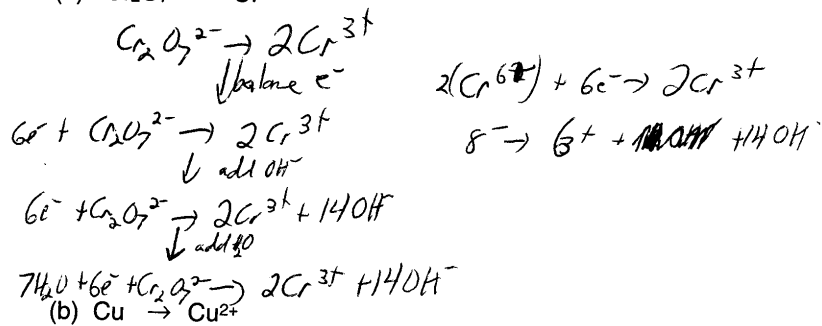 Cr₂O₇²⁻ → 2Cr³⁺
↓ balance e⁻
2(Cr⁶⁺) + 6e⁻ → 2Cr³⁺
6e⁻ + Cr₂O₇²⁻ → 2Cr³⁺
8⁻ → 6⁺ + +14OH⁻
↓ add OH⁻
6e⁻ + Cr₂O₇²⁻ → 2Cr³⁺ + 14OH⁻
↓ add H₂O
7H₂O + 6e⁻ + Cr₂O₇²⁻ → 2Cr³⁺ + 14OH⁻
(b) Cu → Cu²⁺